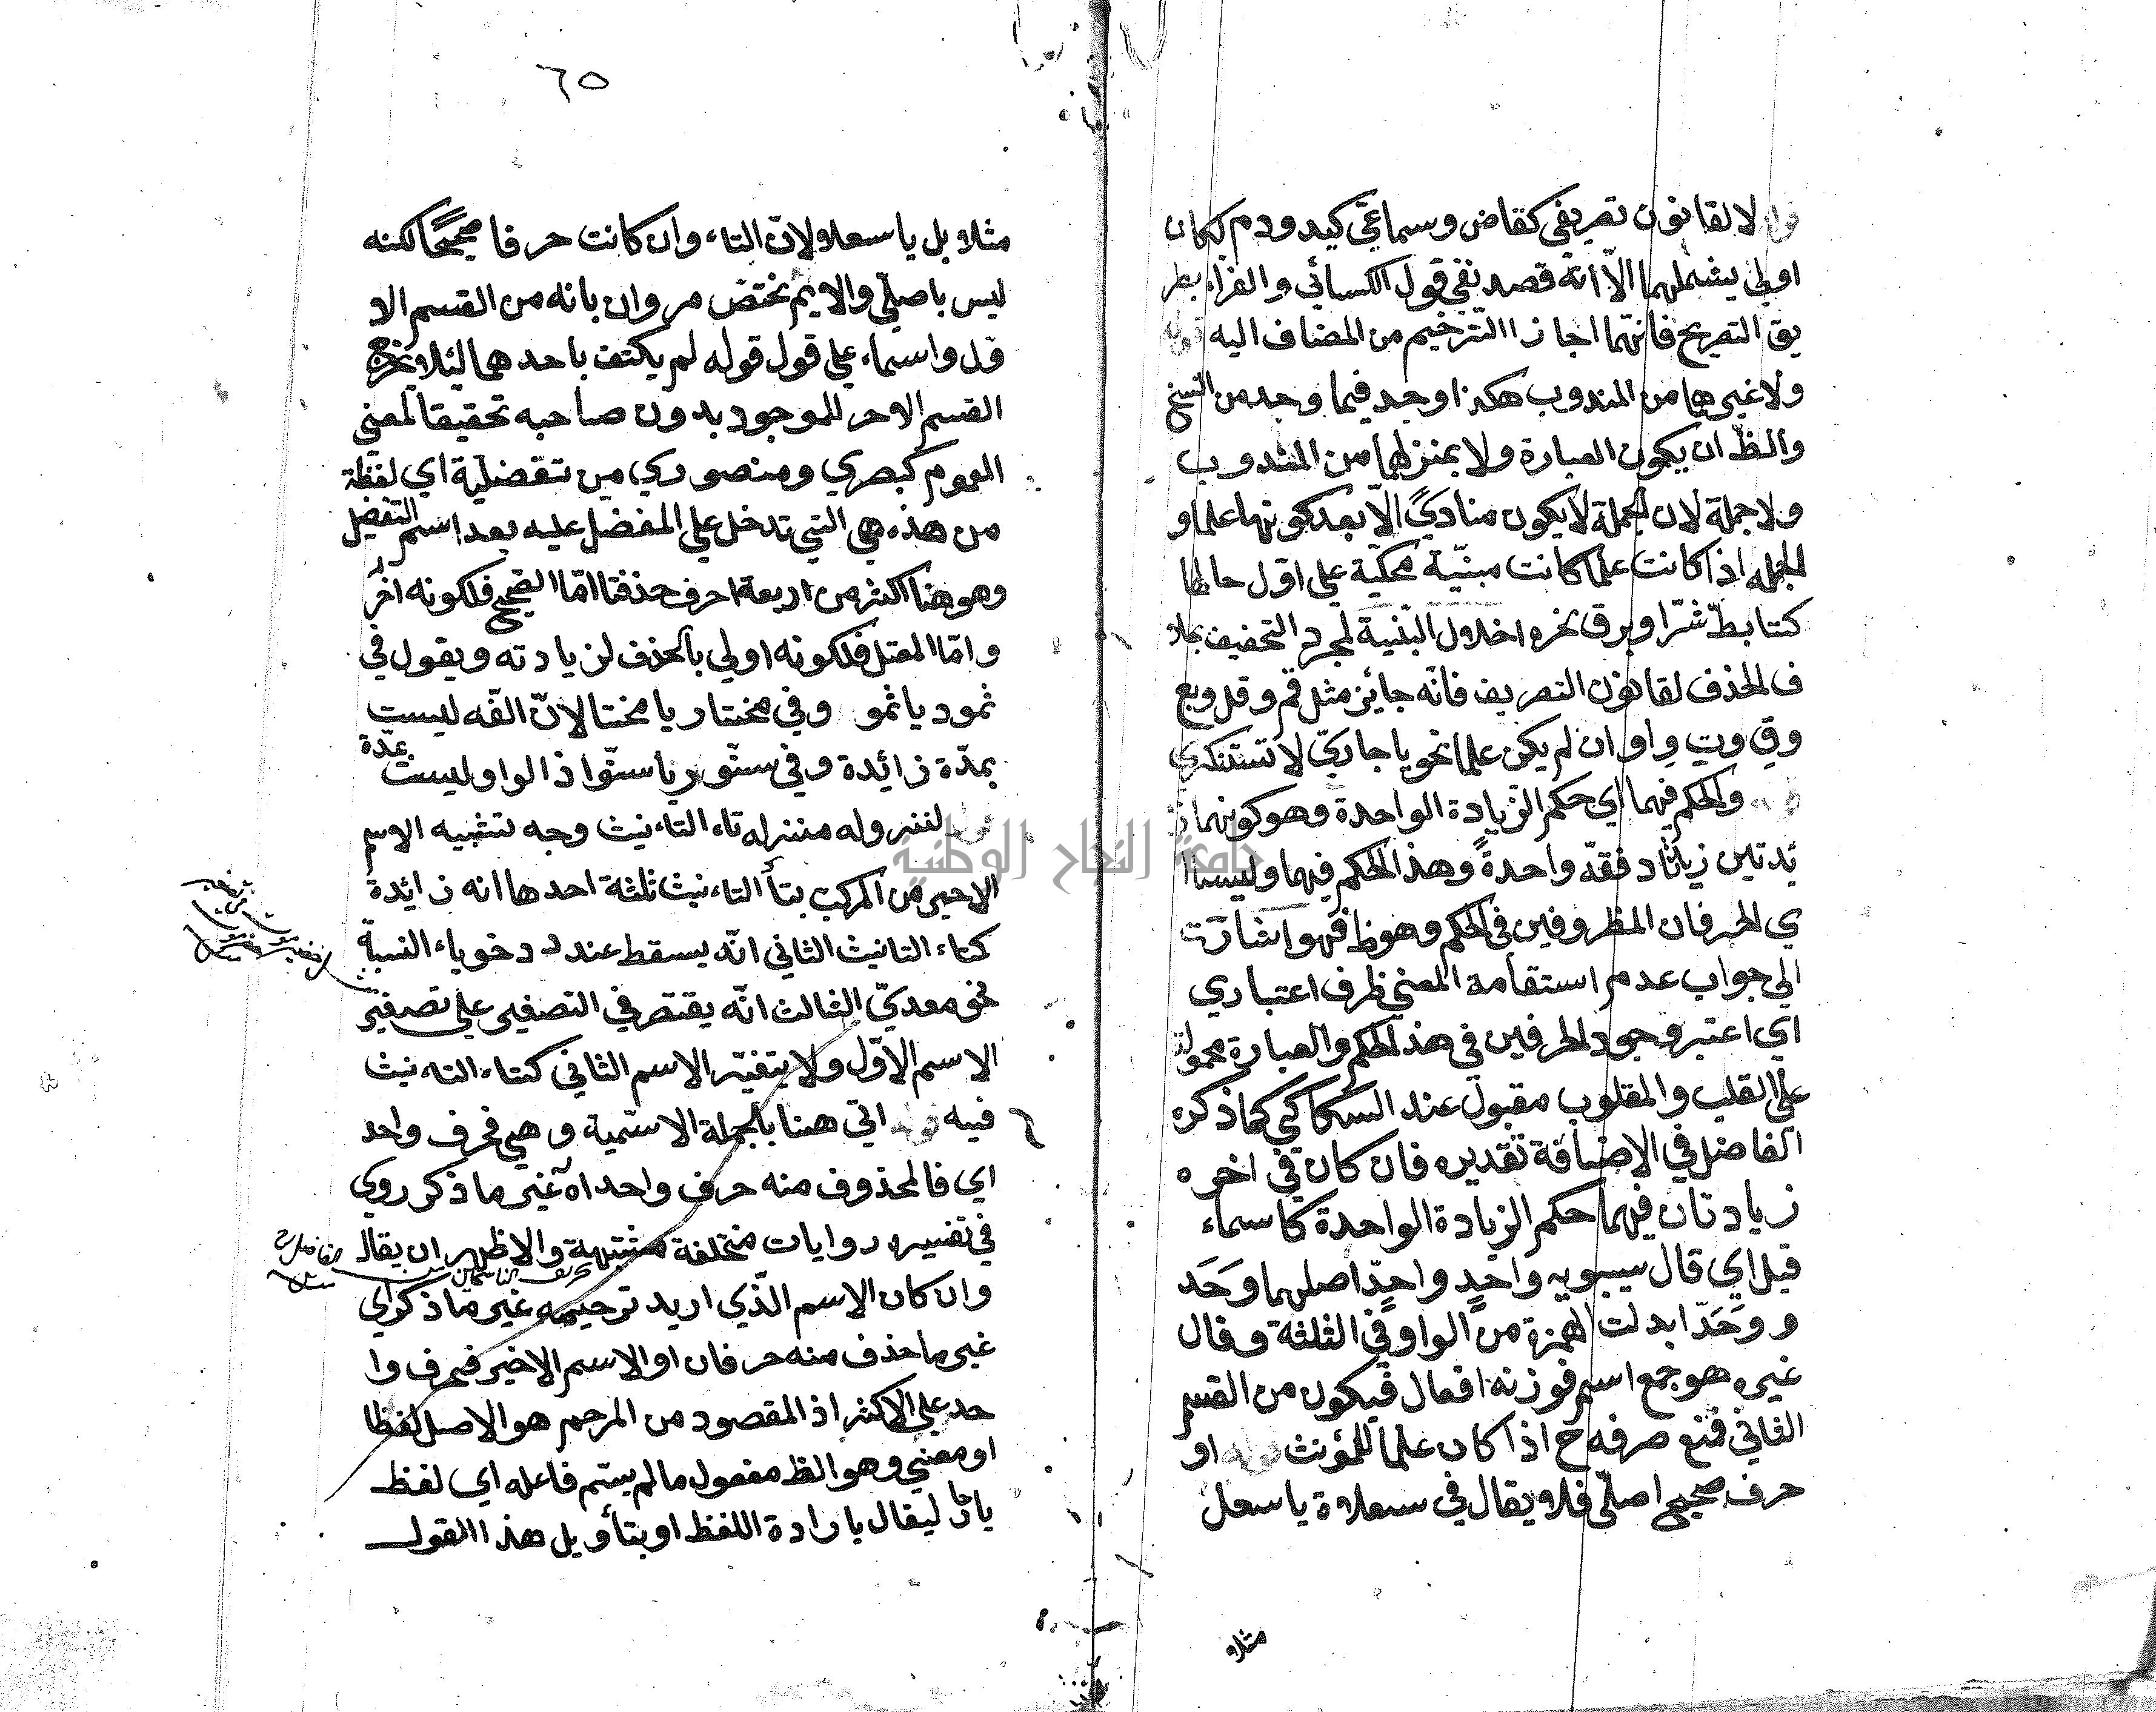 لا لقانون تصريفي كقاض وسماعيّ كيد ودم لكان
اولي يشملهما الّا انّه قصد نفي قول الكسائي والفراء بطر
يق التصريح فانّهما اجازا الترخيم من المضاف اليه قوله
ولا غيرها من المندوب هكذا وجد فيما وجد من النسخ
والظّ ان يكون العبارة ولا بمنزلهما من المندوب
ولا جملة لان الجملة لا يكون منادىً الّا بعد كونها علما و
الجمله اذا كانت علما كانت مبنيّة محكيّة علي اوّل حالها
كتابطّ شرّا وبرق نحره اخلال البنية لمجرد التخفيف بخلا
ف الحذف لقانون التصريف فانّه جائز مثل قم وقل وبع
وق وت واو ان لم يكن علما نحو يا جاريّ لا تستنكري
والحكم فيهما اي حكم الزّيادة الواحدة وهو كونهما زا
ئدتين زيدتا دفقّه واحدةً وهذا الحكم فيهما وليسا ا
ي الحرفان المظروفين في الحكم وهو ظ فهو اشارت
الي جواب عدم استقامة المعني ظرف اعتباري
اي اعتبر وجود الحرفين في هذ الحكم والعبارة محمولة
علي القلب والمقلوب مقبول عند السكاكي كما ذكره
الفاضل في الاضافة تقديره فان كان في اخره
زيادتان فيهما حكم الزيادة الواحدة كاسماء
قيل اي قال سيبويه واحدٍ واحدّ اصلهما وحَد
و وحَدّ ابدلت الهمزة من الواو في الثلثة وقال
غيره هو جمع اسم فوزنه افعال فيكون من القسم
الثاني فمنع صرفه ح اذا كان علماً للمؤنث قوله او
حرف صحيح اصلّي فلا يقال في سعلاة يا سعل
مثلا
٦٥
مثلا بل يا سعلا ولانّ التاء وان كانت حرفا صحيحًا لكنه
ليس باصليّ والا يم نختصّ مروان بانه من القسم الا
ول واسماء علي قول قوله لم يكتف باحدهما لئلا يخرج
القسم الاحر للموجود بدون صاحبه تحقيقا لمعني
العموم كبصري ومنصوري من تفضليّة اي لفظة
من هذه هي التي تدخل علي المفضل عليه بعد اسم التفضيل
وهو هنا اكثر من اربعة احرف حذفتا امّا الصّحيح فلكونه اخرُ
وامّا المعتل فلكونه اولي بالحذف لزيادته ويقول في
ثمود يا ثمو وفي مختار يا مختا لانّ الفّه ليست
بمدّة زائدة وفي سنّور يا سنّوا ذ الواو ليست عدّة
لنزوله منزله تاء التاءنيث وجه تشبيه الاسم
الاخير من المركب بتأ التاءنيث ثلثة احدها انه زائدة
كتاء التانيث الثاني انّه يسقط عند نحو ياء النسبة
نحو معديّ الثالث انّه يقتصر في التصغير علي تصغير
الاسم الاوّل ولا يتغيّر الاسم الثاني كتاء التاءنيث
فيه قوله اتي هنا بالجملة الاسمية وهي فحرف واحد
اي فالمحذوف منه حرف واحد اه غير ما ذكر روي
في تفسيره روايات مختلفة مشتبهة والاظهر ان يقال
وان كان الاسم الّذي اريد ترحيمه غير ما ذكر اي
غير ما حذف منه حرفان او الاسم الاخير فحرف وا
حد علي الاكثر اذ المقصود من المرحم هو الاصل لفظا
او معني وهو الظ مفعول ما لم يسّم فاعله اي لفظ
يا ثا ليقال يا رادة اللفظ او بتأويل هذا القول
جامعة النجاح الوطنية